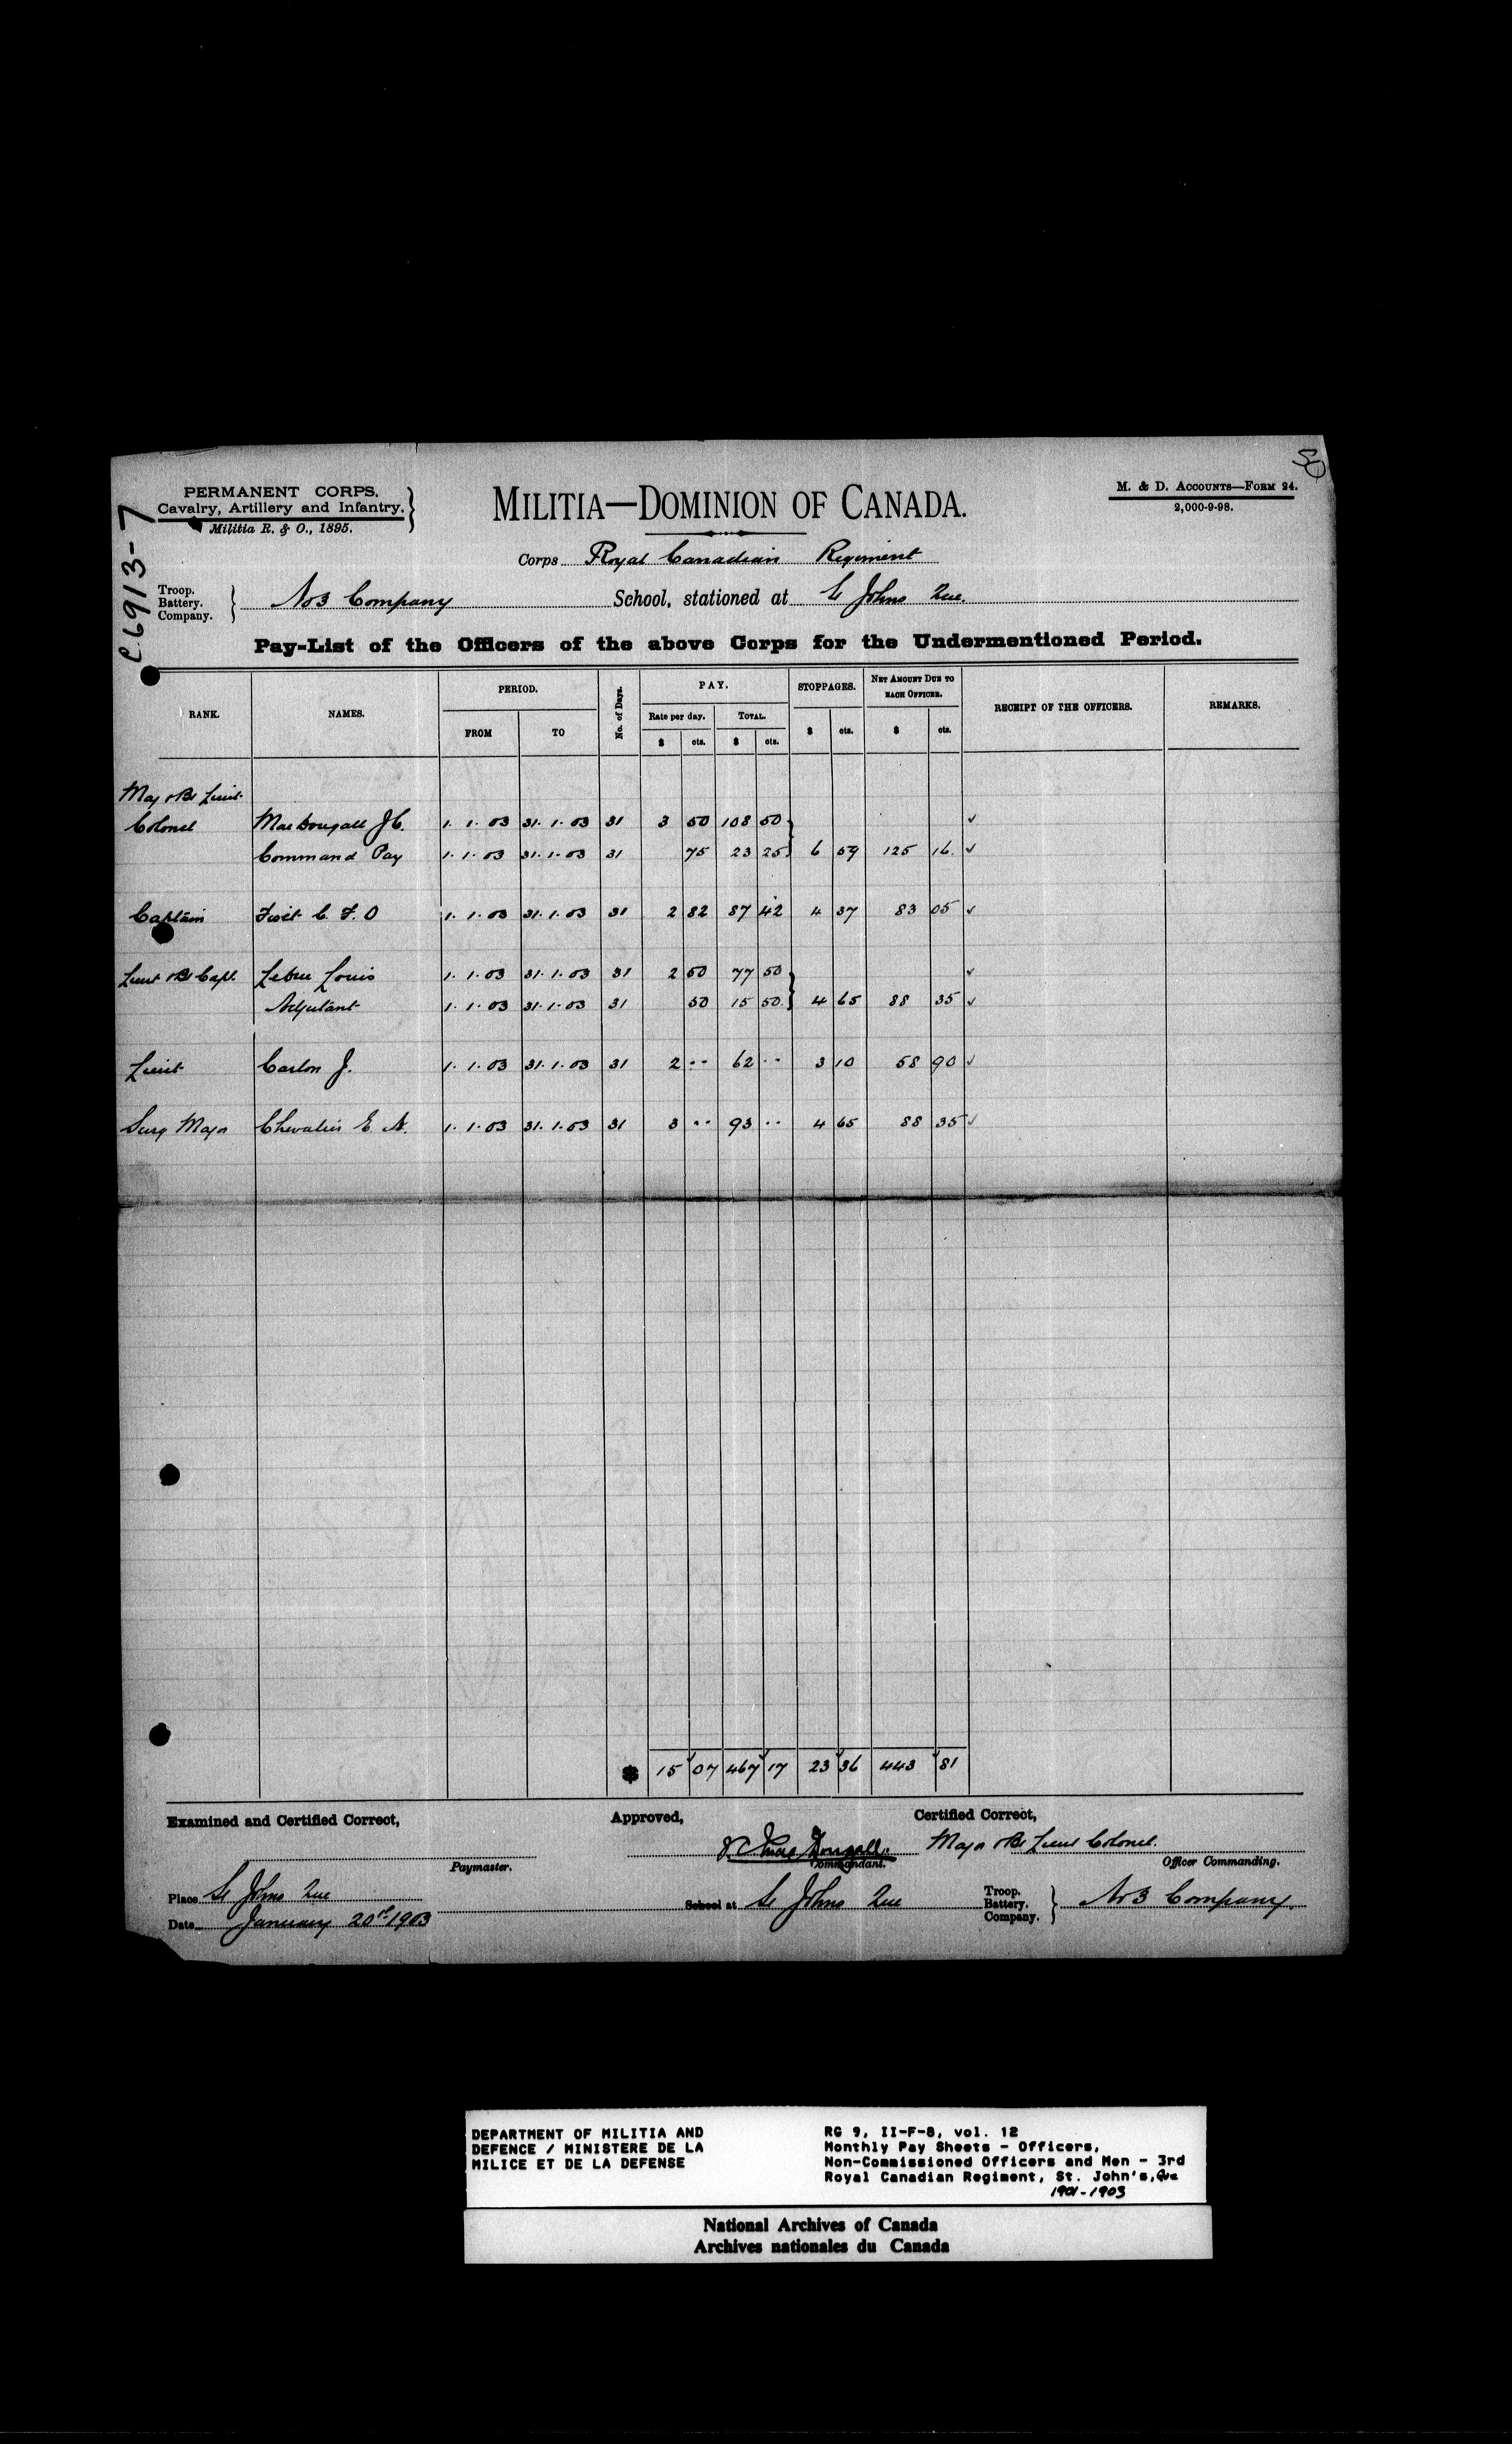 50
C6913-7
PERMANENT CORPS.
Cavalry, Artillery and Infantry.
Militia R. & O., 1895.
MILITIA—DOMINION OF CANADA.
M. & D. ACCOUNTS—FORM 24.
2,000-9-98.
Corps Royal Canadian Regiment
Troop.
Battery.
Company.
No3 Company School, stationed at St Johns Que.
Pay-List of the Officers of the above Corps for the Undermentioned Period.
RANK. NAMES. PERIOD. No. of Days. PAY. STOPPAGES. NET AMOUNT DUE TO EACH OFFICER. RECEIPT OF THE OFFICERS. REMARKS.
FROM TO Rate per day. TOTAL.
$ cts. $ cts. $ cts. $ cts.
Maj & Bt Lieut
Colonel MacDougall J C. 1. 1. 03 31. 1. 03 31 3 50 108 50 ✓
Command Pay 1. 1. 03 31. 1. 03 31 75 23 25 6 59 125 16 ✓
Captain C. F. O 1. 1. 03 31. 1. 03 31 2 82 87 42 4 37 83 05 ✓
Lieut & Bt Capt. Louis 1. 1. 03 31. 1. 03 31 2 50 77 50 ✓
Adjutant 1. 1. 03 31. 1. 03 31 50 15 50 4 65 88 35 ✓
Lieut J. 1. 1. 03 31. 1. 03 31 2 .. 62 .. 3 10 58 90 ✓
Surg Major Chevalier E. A. 1. 1. 03 31. 1. 03 31 3 .. 93 .. 4 65 88 35 ✓
$ 15 07 467 17 23 36 443 81
Examined and Certified Correct, Approved, Certified Correct,
J C MacDougall Major & Bt Lieut Colonel.
Paymaster. Commandant. Officer Commanding.
Place St Johns Que
School at St Johns Que
Troop.
Battery.
Company.
No 3 Company.
Date January 20th 1903
DEPARTMENT OF MILITIA AND
DEFENCE / MINISTERE DE LA
MILICE ET DE LA DEFENSE
RG 9, II-F-8, vol. 12
Monthly Pay Sheets - Officers,
Non-Commissioned Officers and Men - 3rd
Royal Canadian Regiment, St. John's, Que
1901-1903
National Archives of Canada
Archives nationales du Canada